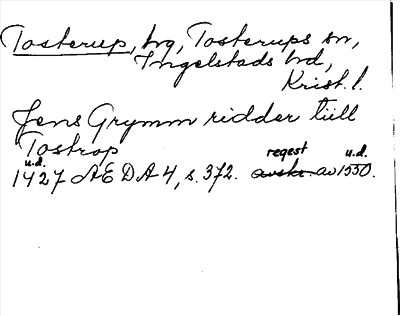 Tosterup, by, Tosterups sn,
Ingelstads hd,
Krist. l.
Jens Grymm ridder tiill
Tostrop
u.d.
1427 AEDA 4, s. 372. regest avskr. av 1550. u.d.